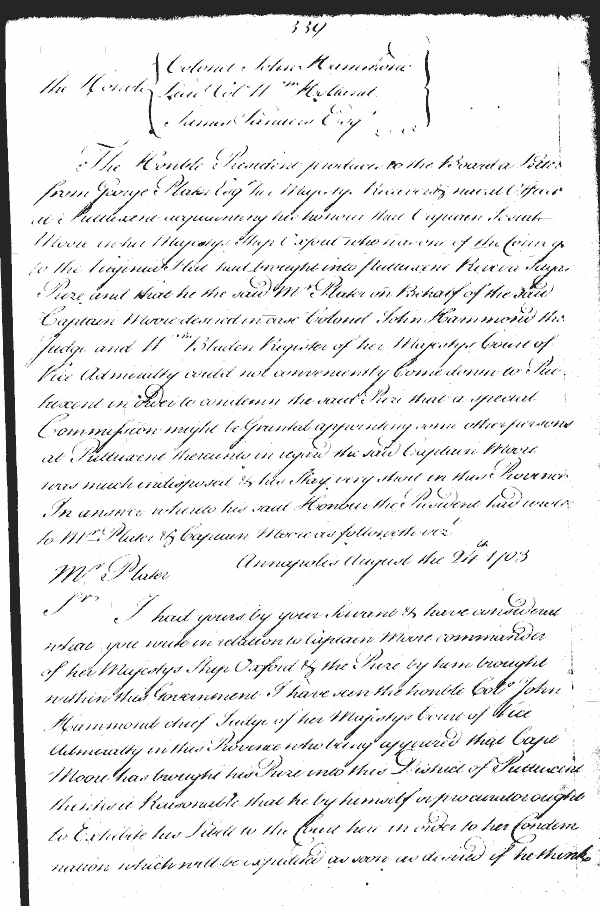 339
the Honble
Colonel John Hammond
Lieut Col Wm Holland
James Sanders Esqr
The Honble President produces to the Board a Letter
from George Plater Esqr her Majestys Receiver & naval Officer
at Puttuxent acquainting his honour that Captain Josiah
Moore in her Majestys Ship Oxford who was one of the Convoys
to the Virginia Fleet had brought into Puttuxent River a
Prize and that he the said Mr Plater on Behalf of the said
Captain Moore desired in case Colonel John Hammond the
Judge and Wm Bladen Register of her Majestys Court of
Vice Admiralty could not conveniently Come down to Put
tuxent in order to condemn the said Prize that a special
Commission might be Granted appointing some other persons
at Puttuxent thereunto in regard the said Captain Moore
was much indisposed & his Stay very short in this Province
In answer whereto his said Honour the President had wrote
to Mr Plater & Captain Moore as followeth vizt
Annapolis August the 24th 1703
Mr Plater
Sr
I had yours by your Servant & have considered
what you write in relation to Captain Moore commander
of her Majestys Ship Oxford & the Prize by him brought
within this Government I have seen the honble Colo John
Hammond chief Judge of her Majestys Court of Vice
Admiralty in this Province who being apprized that Capt
Moore has brought his Prize into this District of Puttuxent
thinks it Reasonable that he by himself or procurator ought
to Exhibite his Libell to the Court here in order to her Condem
nation which will be expedited as soon as desired if he think